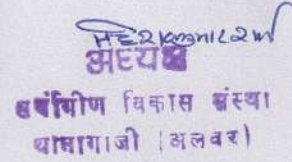 अध्यक्ष
सर्वांगीण विकास संस्था
थानागाजी (अलवर)